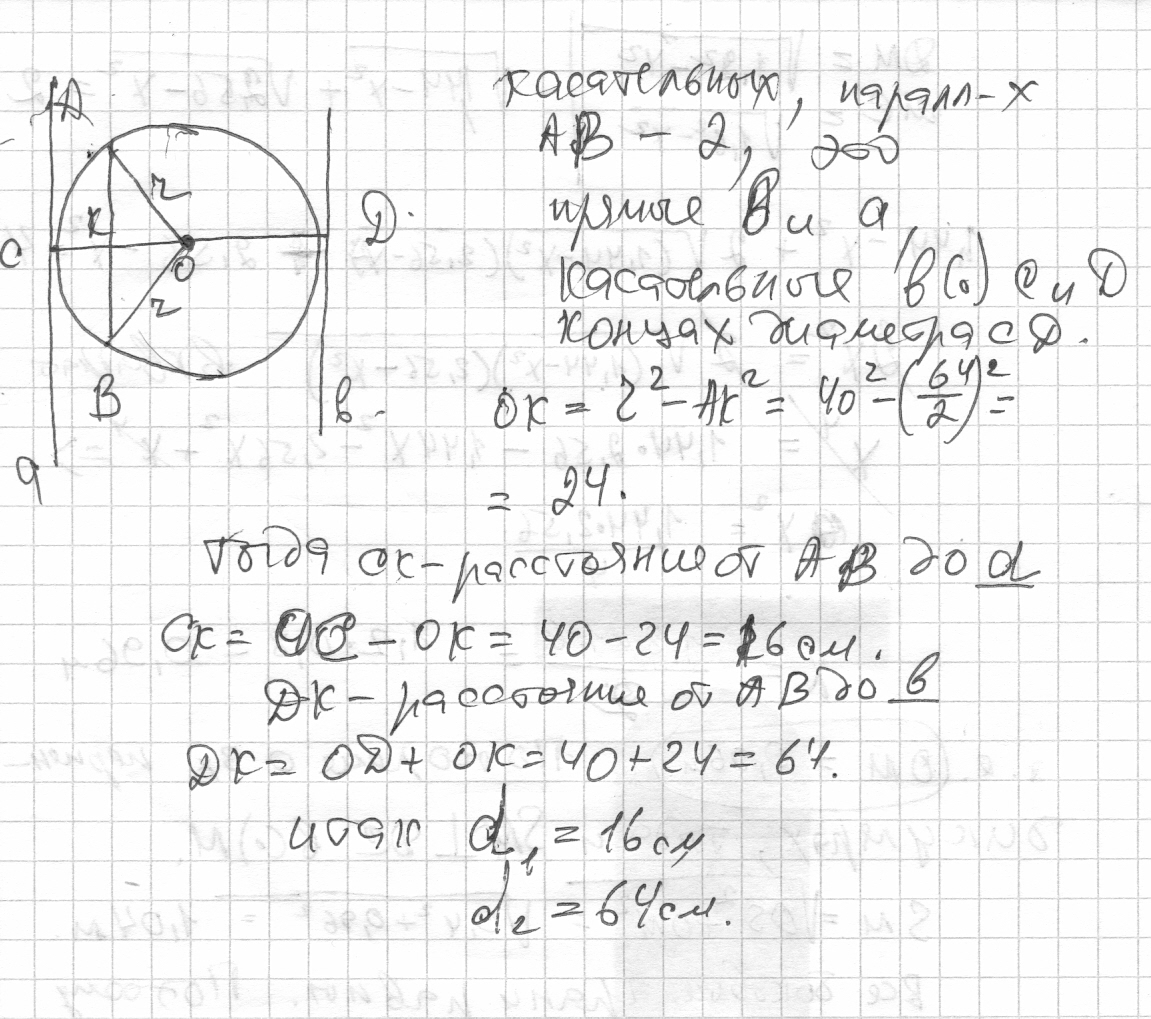 касательных, паралл-х
AB – 2, это
прямые в и а,
касательные в (·) C и D
концах диаметра CD.
OK = r² – AK² = 40² – (64/2)² =
= 24.
Тогда CK – расстояние от AB до a
CK = OC – OK = 40 – 24 = 16 см.
DK – расстояние от AB до в
DK = OD + OK = 40 + 24 = 64.
итак d₁ = 16 см
d₂ = 64 см.
A
r
K
C
D
O
r
B
в
a